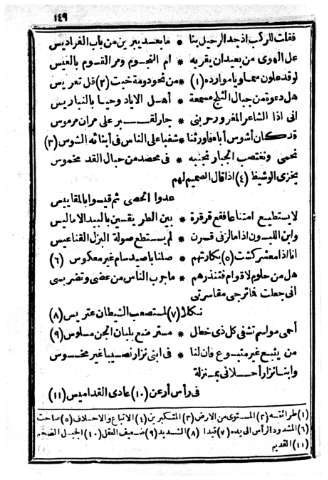 ١٤٩
فقلت للركب اذ جد الرحيل بنا * ما بعد يبرين من باب الفراديس
عل الهوى من بعيد ان يقربه * ام النجوم ومر القوم بالعيس
لو قد علون سماويا موارده (١) * من نحو دومة خبت (٢) قل تعريسى
هل دعوة من جبال الثلج مسمعة * أهل الاياد وحيا بالنباريس
انى اذا الشاعر المغرور حربنى * جار لقبر على مران مرموس
قد كان أشوس أباء فأورثنا * شغبا على الناس فى أبنائه الشوس (٣)
نحمى ونغتصب الجبار نجنبه * فى محصد من حبال القد مخموس
يخزى الوشيظ (٤) اذا قال الصميم لهم
عدوا الحصى ثم قيسوا بالمقاييس
لا يستطيع امتناعا فقع قرقرة * بين الطريقين بالبيد الاماليس
وابن اللبون اذا ما لز فى قرن * لم يستطع صولة البزل القناعيس
انا اذا معشر كشت (٥) بكارتهم * صلنا باصيد سام غير معكوس (٦)
هل من حلوم لاقوام فتنذرهم * ما جرب الناس من عضى وتضريسى
انى جعلت فما ترجى مقاسرتى
نكلا (٧) لمستصعب الشيطان عتريس (٨)
أحمى مواسم تشفى كل ذى خطل * مسترضع بلبان الجن مسلوس (٩)
من يتبع غير متبوع فان لنا * فى ابنى نزار نصيبا غير مخسوس
وابنا نزار أحلانى بمنزلة
فى رأس أرعن (١٠) عادى القداميس (١١)
(١) طرائقه (٢) المستوى من الارض (٣) المتكبرين (٤) الاتباع والاحلاف (٥) صاحت
(٦) المشدود الرأس الى يده (٧) قيدا (٨) الشديد (٩) ضعيف العقل (١٠) الجبل الضخم
(١١) القديم